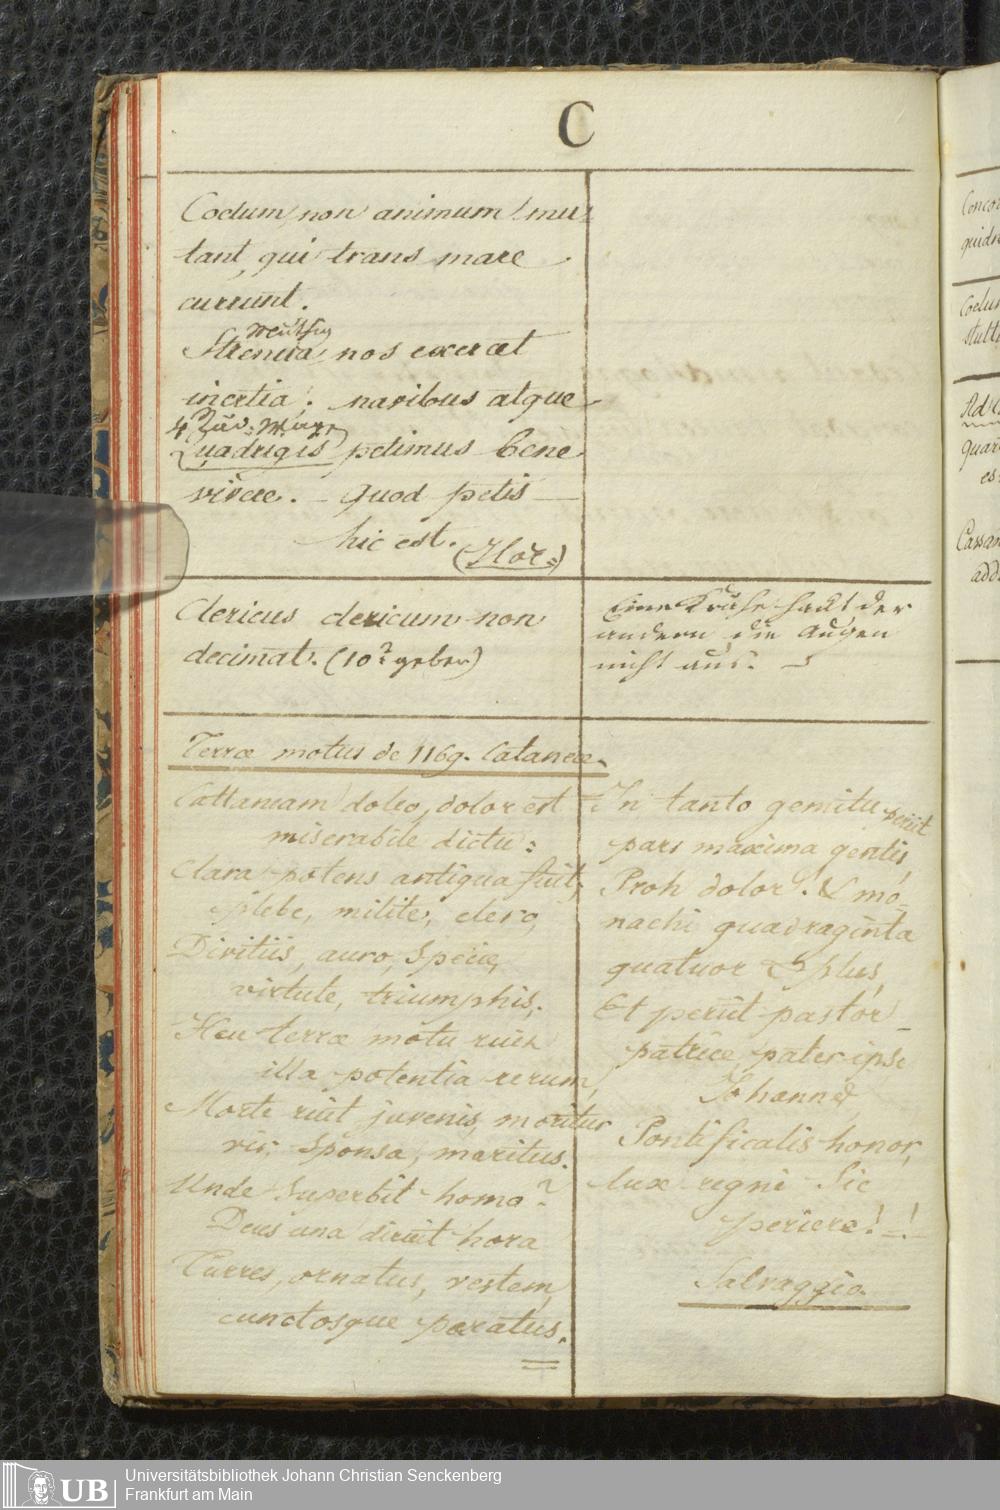 C
Coelum, non animum mu=
tant, qui trans mare
currunt.
Strenua nos exercet
inertia: navibus atque
4 Quadrigis petimus bene
vivere. – Quod petis –
hic est. (Hor.)
Clericus clericum non
decimat. (10 geben)
Eine Krähe hackt der
andern die Augen
nicht aus. –
Terræ motus de 1169. Cataneæ.
Cattaneam doleo, dolor est
miserabile dictu:
Clara potens antiqua fuit,
plebe, milite, clero,
Divitiis, auro, specie,
virtute, triumphis.
Heu terræ motu ruit
illa potentia rerum,
Morte ruit juvenis, moritur
vir, Sponsa, maritus.
Unde Superbit homo?
Deus una diruit hora
Turres, ornatus, vestem,
cunctosque paratus.
In tanto gemitu periit
pars maxima gentis,
Proh dolor! & mo=
nachi quadraginta
quatuor & plus,
Et periit pastor
patriæ, pater ipse
Johannes,
Pontificalis honor,
lux regni Sic
periere! –!
Salvaggio.
Conco
quidn
Coelu
stult
Ad
quar
es
Cassan
add
UB
Universitätsbibliothek Johann Christian Senckenberg
Frankfurt am Main